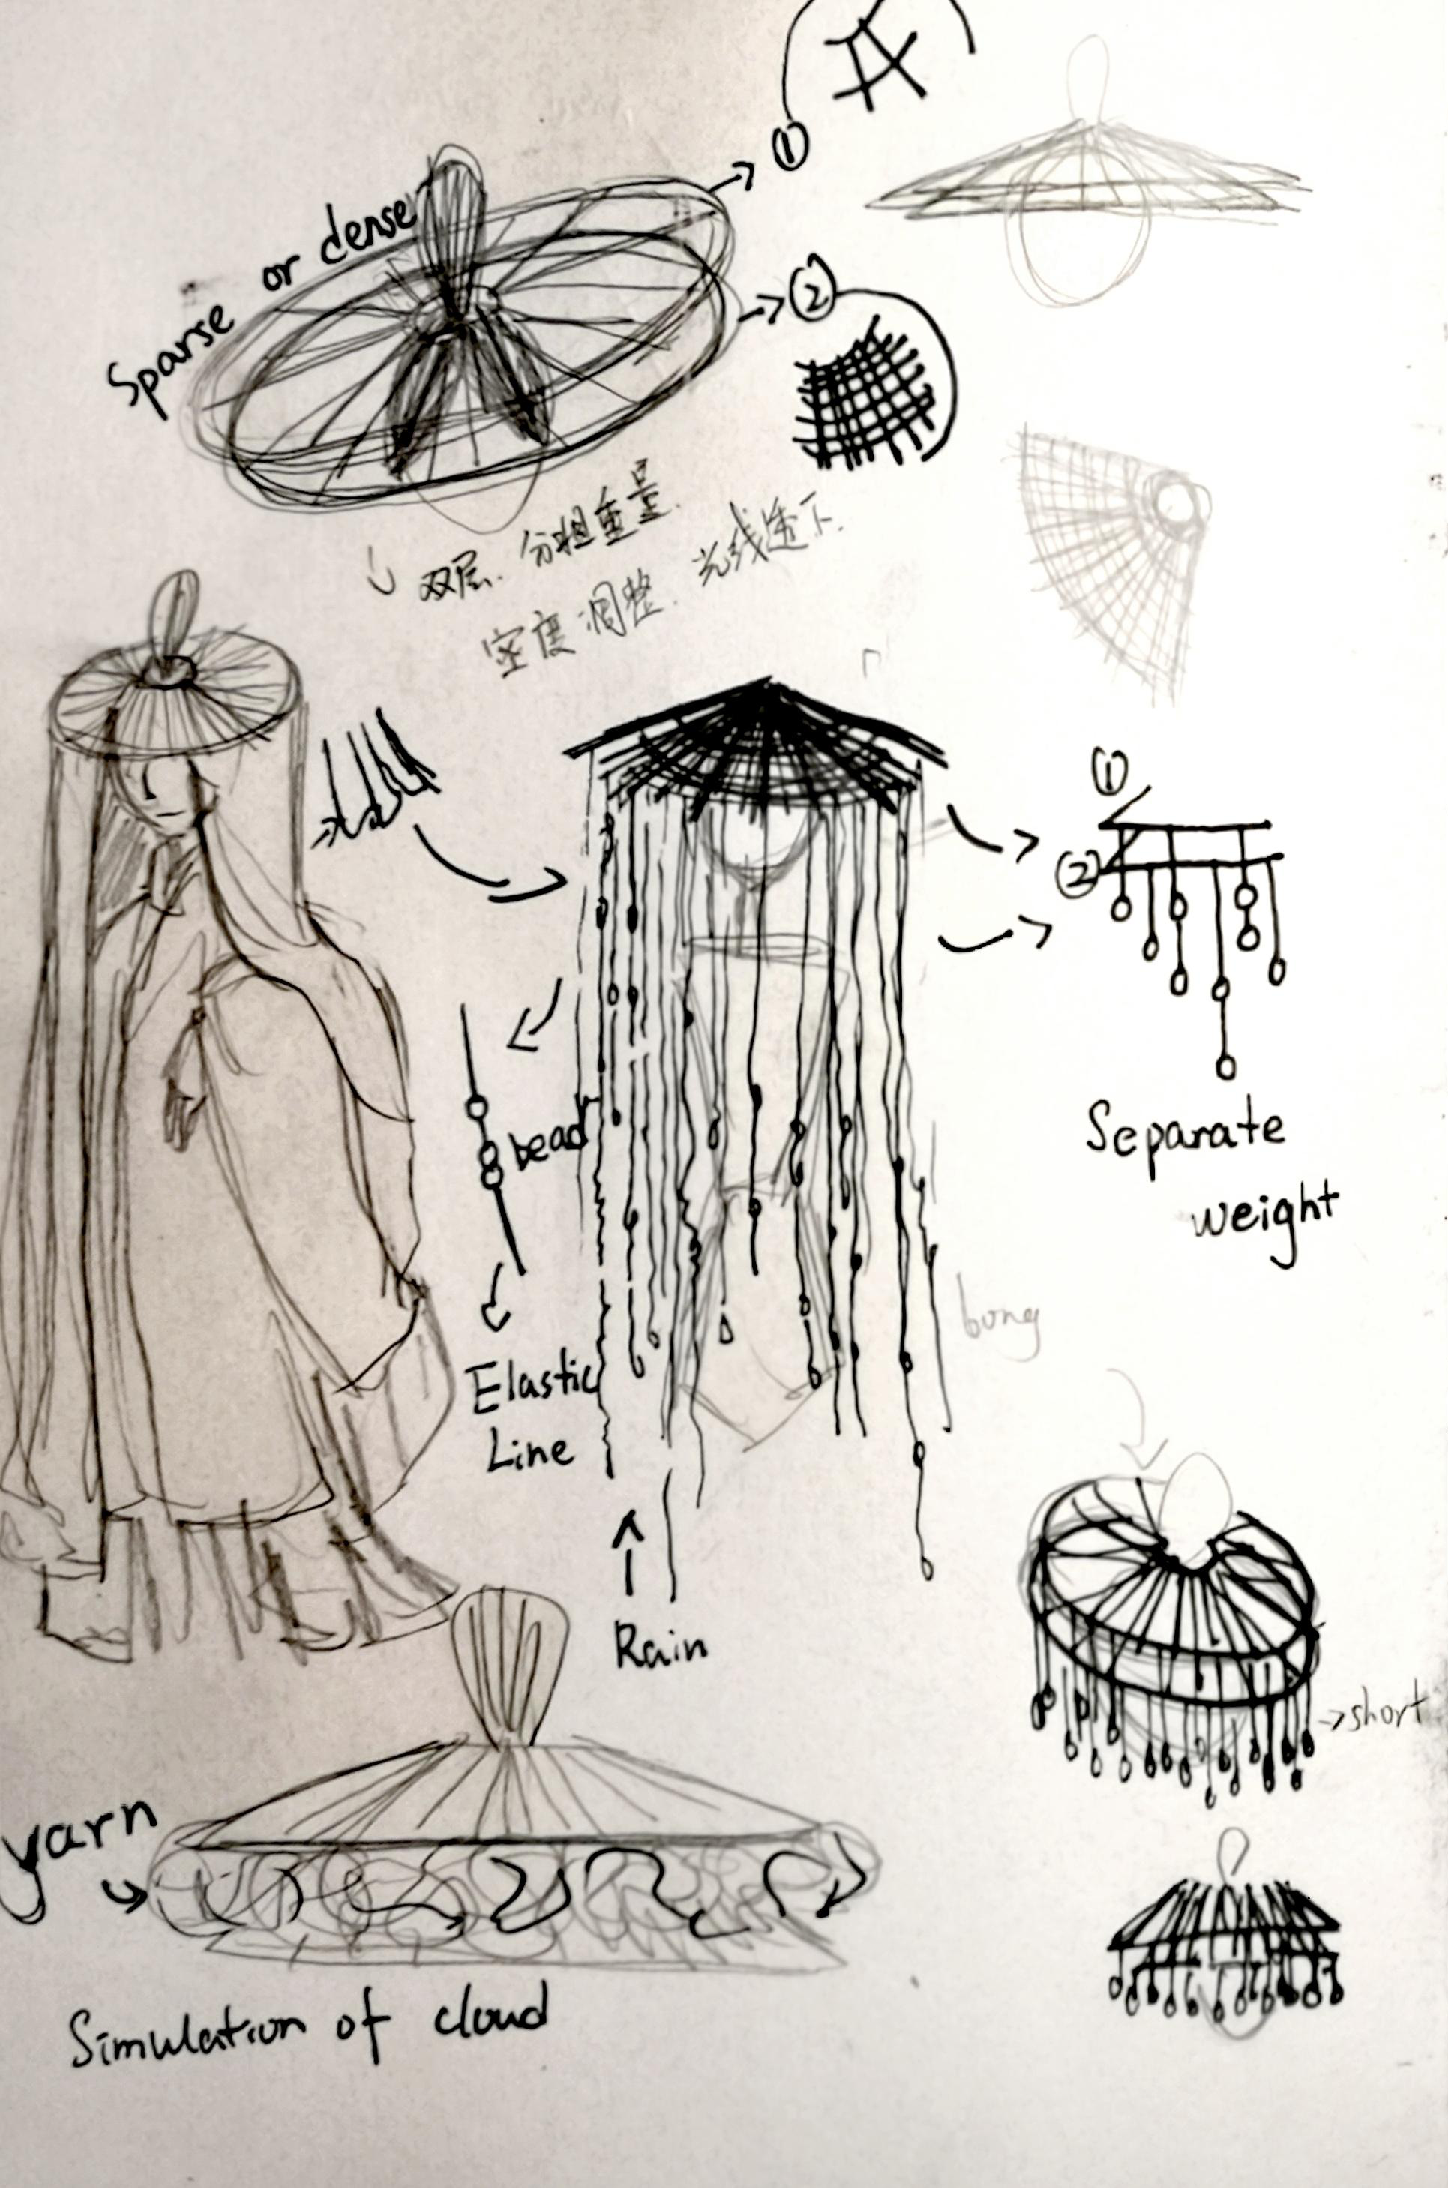 ①
Sparse or dense
②
双层. 分担重量.
密度调整. 光线透下.
①
②
Separate
weight
bead
Elastic
Line
Rain
→short
yarn
Simulation of cloud